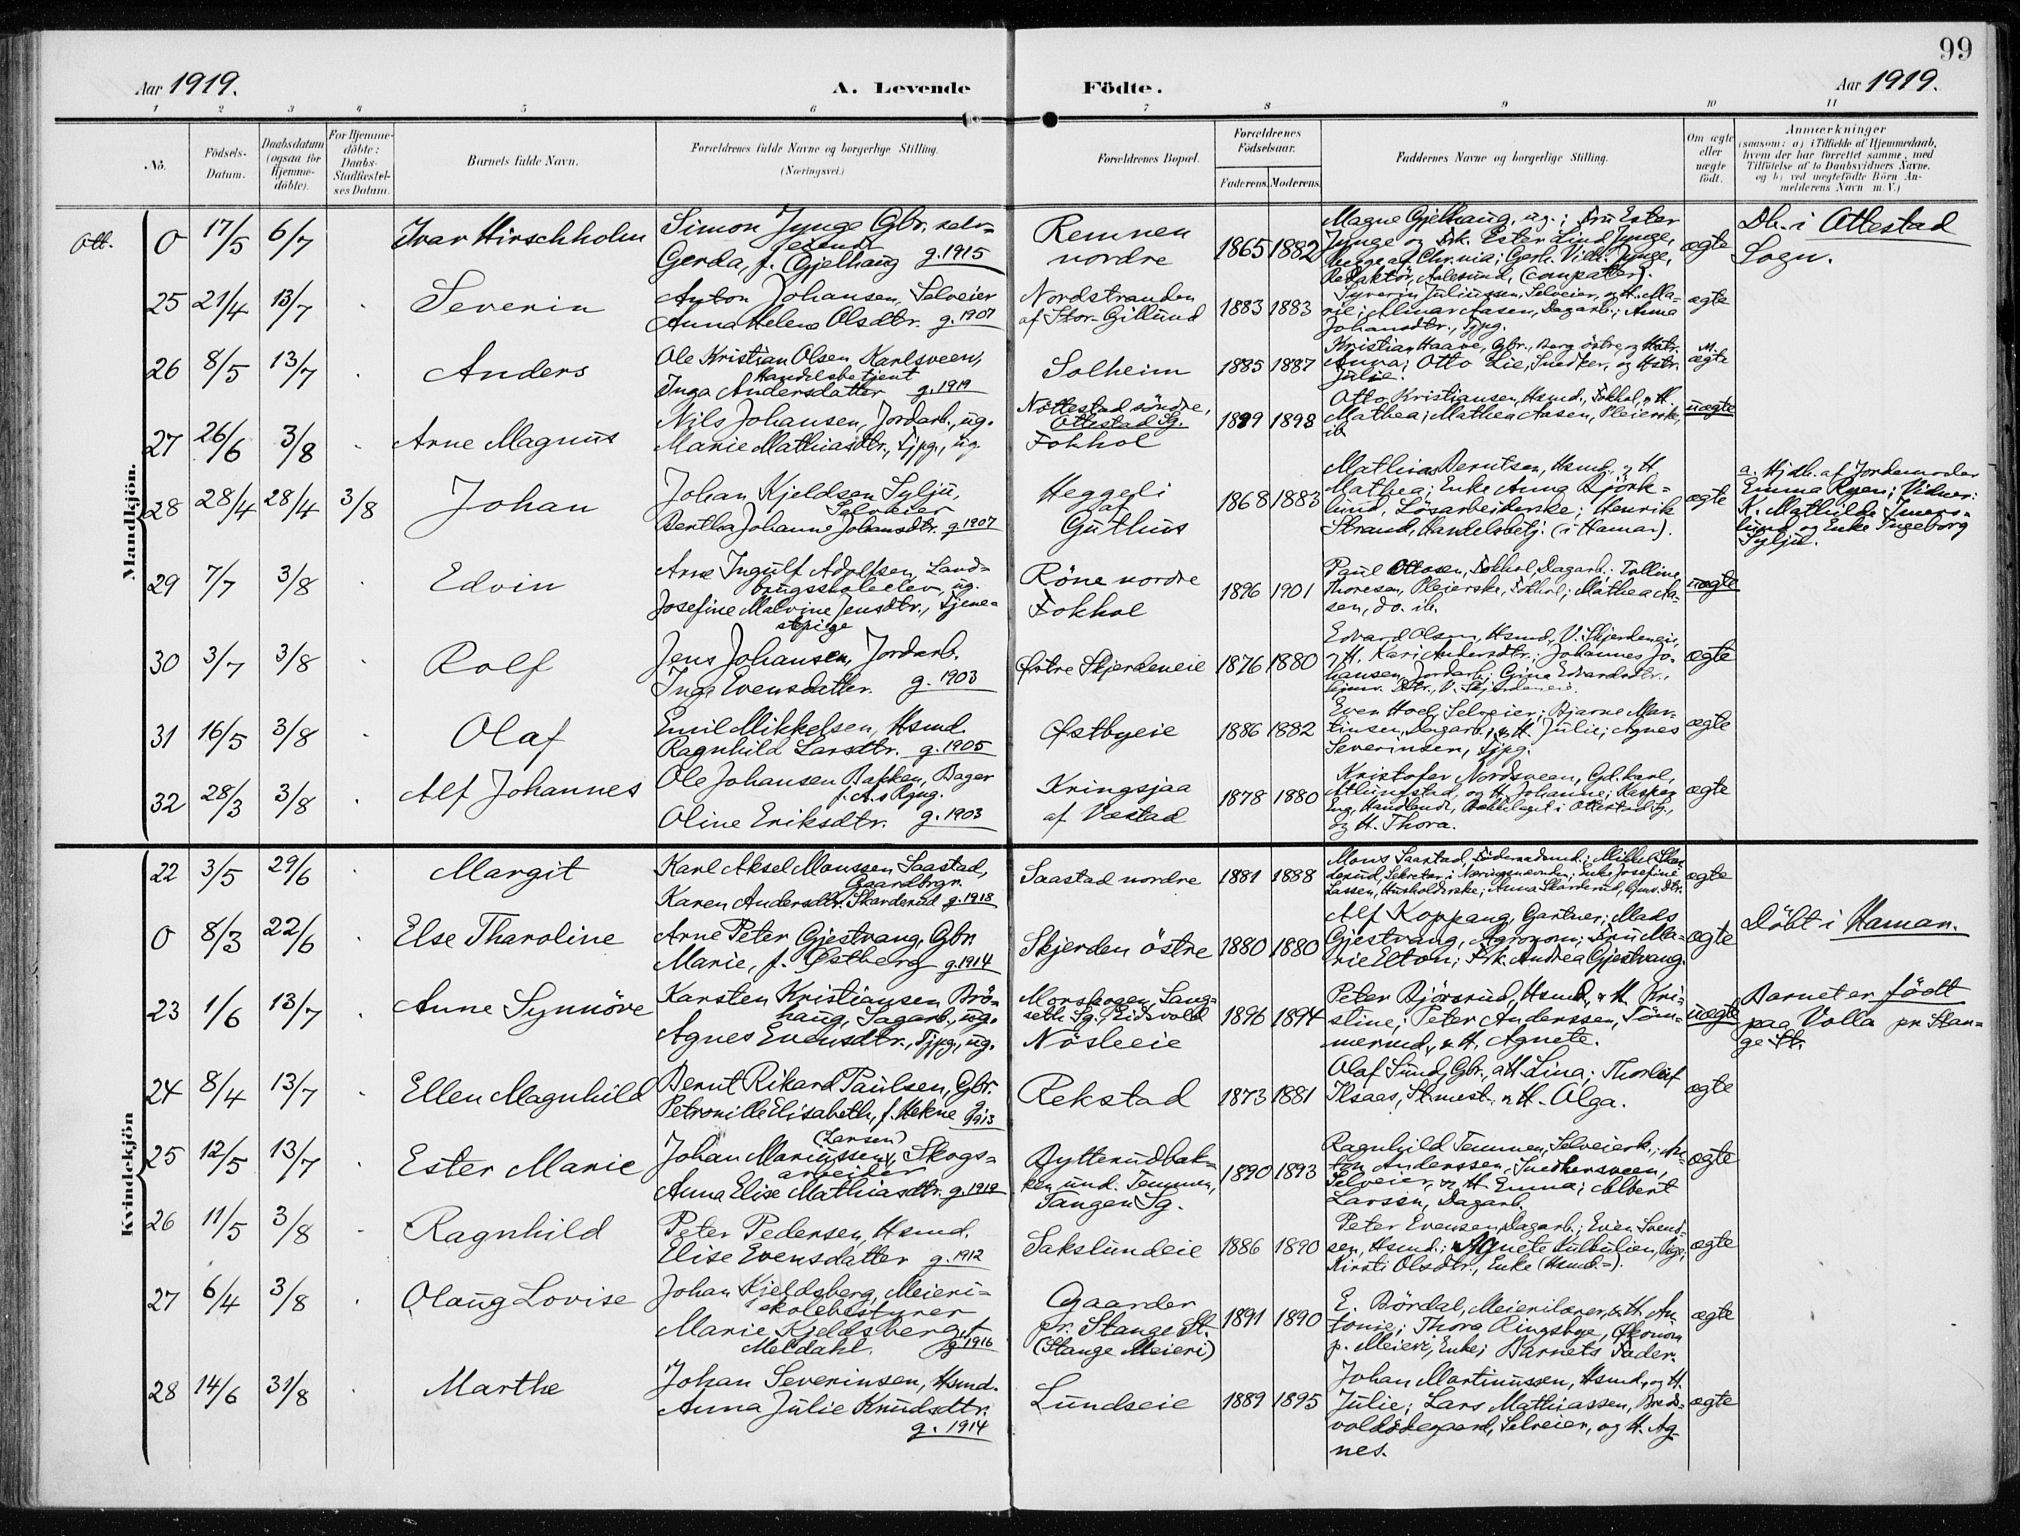 99
Aar 1919.
A. Levende
Födte.
Aar 1919.
1 2 3 4 5 6 7 8 9 10 11
No.
Födsels-
Datum.
Daabsdatum
(ogsaa for
Hjemme-
döbte).
For Hjemme-
döbte:
Daabs-
Stadfæstel-
ses Datum.
Barnets fulde Navn.
Forældrenes fulde Navne og borgerlige Stilling.
(Næringsvei.)
Forældrenes Bopæl.
Forældrenes
Födselsaar.
Faderens. Moderens.
Faddernes Navne og borgerlige Stilling.
Om ægte
eller
uægte
födt.
Anmærkninger
(saasom: a) i Tilfælde af Hjemmedaab,
hvem der har forrettet samme, med
Tilföielse af to Daabsvidners Navne.
og b) ved uægtefödte Börn An-
melderens Navn m. V.)
Mandkjön.
Ott. 0 17/5 6/7
Ivar Hirschholm
Simon Junge Gbr. selv-
eiende
Gerda, f. Gjelhaug g. 1915
Remnen
nordre
1865 1882
Magne Gjelhaug, ug.; Fru Ester
Junge og Frk. Ester Lind Junge,
begge af Chr.nia; Gerh. Vilh. Junge,
Redaktør, Aalesund, (compater).
ægte
Db. i Ottestad
Sogn.
25 21/4 13/7
Severin
Anton Johansen, Selveier
Anna Helene Olsdtr. g. 1907
Nordstranden
af Stor-Gillund
1883 1883
Syverin Juliussen, Selveier, og H. Ma-
rie; Almar Aasen, Dagarb.; Anna
Johansdtr., Tjpg.
ægte
26 8/5 13/7
Anders
Ole Kristian Olsen Karlsveen,
Handelsbetjent
Inga Andersdatter g. 1919
Solheim
1885 1887
Kristian Haave, Gbr., Berg östre, og Hstr.
Anna; Otto Lie, Snedker, og Hstr.
Julie.
ægte
27 26/6 3/8
Arne Magnus
Nils Johansen, Jordarb., ug.
Marie Mathiasdtr., Tjpg., ug.
Nöttestad söndre,
Ottestad Sg.
Fokhol
1899 1898
Otto Kristiansen, Hsmd., Fokhol, og H.
Mathea; Mathea Aasen, Pleierske,
ib
uægte
28 28/4 28/4 3/8
Johan
Johan Kjeldsen Sylju,
Selveier
Bertha Johanne Johansdtr. g. 1907
Heggerli
af
Guthus
1868 1883
Mathias Berntsen, Hsmd., og H.
Mathea; Enke Anna Björk-
lund, Lösarbeiderske; Henrik
Strand, Handelsbetj. (i Hamar).
ægte
a. Hjdb. af Jordemoder
Emma Ryen; Vidner:
K. Mathilde Imers-
lund og Enke Ingeborg
Sylju.
29 7/7 3/8
Edvin
Arne Ingulf Adolfsen, Land-
brugsskoleelev, ug.
Josefine Malvine Jensdtr., Tjene-
stpige
Röne nordre
Fokhol
1896 1901
Paul Ottosen, Fokhol, Dagarb.; Tolline
Thoresen, Pleierske, Fokhol; Mathea Aa-
sen, do. ib.
uægte
30 3/7 3/8
Rolf
Jens Johansen, Jordarb.
Inga Evensdatter. g. 1903
Østre Skjerdeneie
1876 1880
Edvard Olsen, Hsmd., V. Skjerdeneie,
og H. Kari Andersdtr.; Johannes Jo-
hansen, Jordarb.; Gina Edvardsdtr.,
Hjmv. Dtr., V. Skjerdeneie.
ægte
31 16/5 3/8
Olaf
Emil Mikkelsen, Hsmd.
Ragnhild Larsdtr. g. 1905
Østbyeie
1886 1882
Even Hoel, Selveier; Bjarne Mar-
tinsen, Dagarb., og H. Julie; Agnes
Severinsen, Tjpg.
ægte
32 28/3 3/8
Alf Johannes
Ole Johansen Bakken, Bager
Oline Eriksdtr. g. 1903
Kringsjaa
af Vestad
1878 1880
Kristofer Nordsveen, Gd.karl,
og H. Johanne; Kasper
Eng, Handlende, Bekkelaget i Ottestad Sg.,
og H. Thora.
ægte
Kvindekjön
22 3/5 29/6
Margit
Karl Aksel Monssen Saastad,
Gaardbrgr.
Karen Andersdtr. Skarderud g. 1918
Saastad nordre
1881 1888
Mons Saastad, Föderaadsmd.; Mikkel Skar-
derud, Sekretær i Næringsnævnden; Enke Josefine
Lassen, Husholderske; Anna Skarderud, Hjmv. Dtr.
ægte
0 8/3 22/6
Else Tharoline
Arne Peter Gjestvang, Gbr.
Marie, f. Østberg g. 1914
Skjerden östre
1880 1880
Alf Koppang, Gartner; Mads
Gjestvang, Agronom; Fru Ma-
rie Elton; Frk. Andrea Gjestvang.
ægte
Döbt i Hamar.
23 1/6 13/7
Anne Synnöve
Karsten Kristiansen Brö-
haug, Sagarb., ug.
Agnes Evensdtr., Tjpg., ug.
Morskogen, Lang-
seth Sg., Eidsvold
Nösleie
1896 1894
Peter Björsrud, Hsmd., og H. Kri-
stine; Peter Anderssen, Töm-
mermd., og H. Agnete.
uægte
Barnet er födt
paa Volla pr. Stan-
ge St.
24 8/4 13/7
Ellen Magnhild
Bernt Rikard Paulsen, Gbr.
Petronille Elisabeth, f. Hekne g. 1913
Rekstad
1873 1881
Olaf Sund, Gbr., og H. Lina; Thorleif
Ilsaas, St.mest., og H. Olga.
ægte
25 12/5 13/7
Ester Marie
(Larsen)
Johan Mariussen, Skogs-
arbeider
Anna Elise Mathiasdtr. g. 1919
Bytterudbak-
ken und. Temmen,
Tangen Sg.
1890 1893
Ragnhild Temmen, Selveierk.; An-
ton Anderssen, Snedkersveen,
Selveier, og H. Emma; Albert
Larsen, Dagarb.
ægte
26 11/5 3/8
Ragnhild
Peter Pedersen, Hsmd.
Elise Evensdatter g. 1912
Sakslundeie
1886 1890
Peter Evensen, Dagarb.; Even Svend-
sen, Hsmd.; Agnete Kulbulien,
Kirsti Olsdtr., Enke (Hsmd.-).
ægte
27 6/4 3/8
Olaug Lovise
Johan Kjeldsberg, Meieri-
skolebestyrer
Marie Kjeldsberg, f.
Meldahl. g. 1916
Gaarder
pr. Stange St.
(Stange Meieri)
1891 1890
E. Bördal, Meierilærer, & H. An-
tonie; Thora Ringsbye, Økonom
p. Meieri, Enke; Barnets Fader.
ægte
28 14/6 31/8
Marthe
Johan Severinsen, Hsmd.
Anna Julie Knudsdtr.
g. 1914
Lundseie
1889 1895
Johan Martinussen, Hsmd., og H.
Julie; Lars Mathiassen, Bred-
voldödegaard, Selveier, og H. Ag-
nes.
ægte